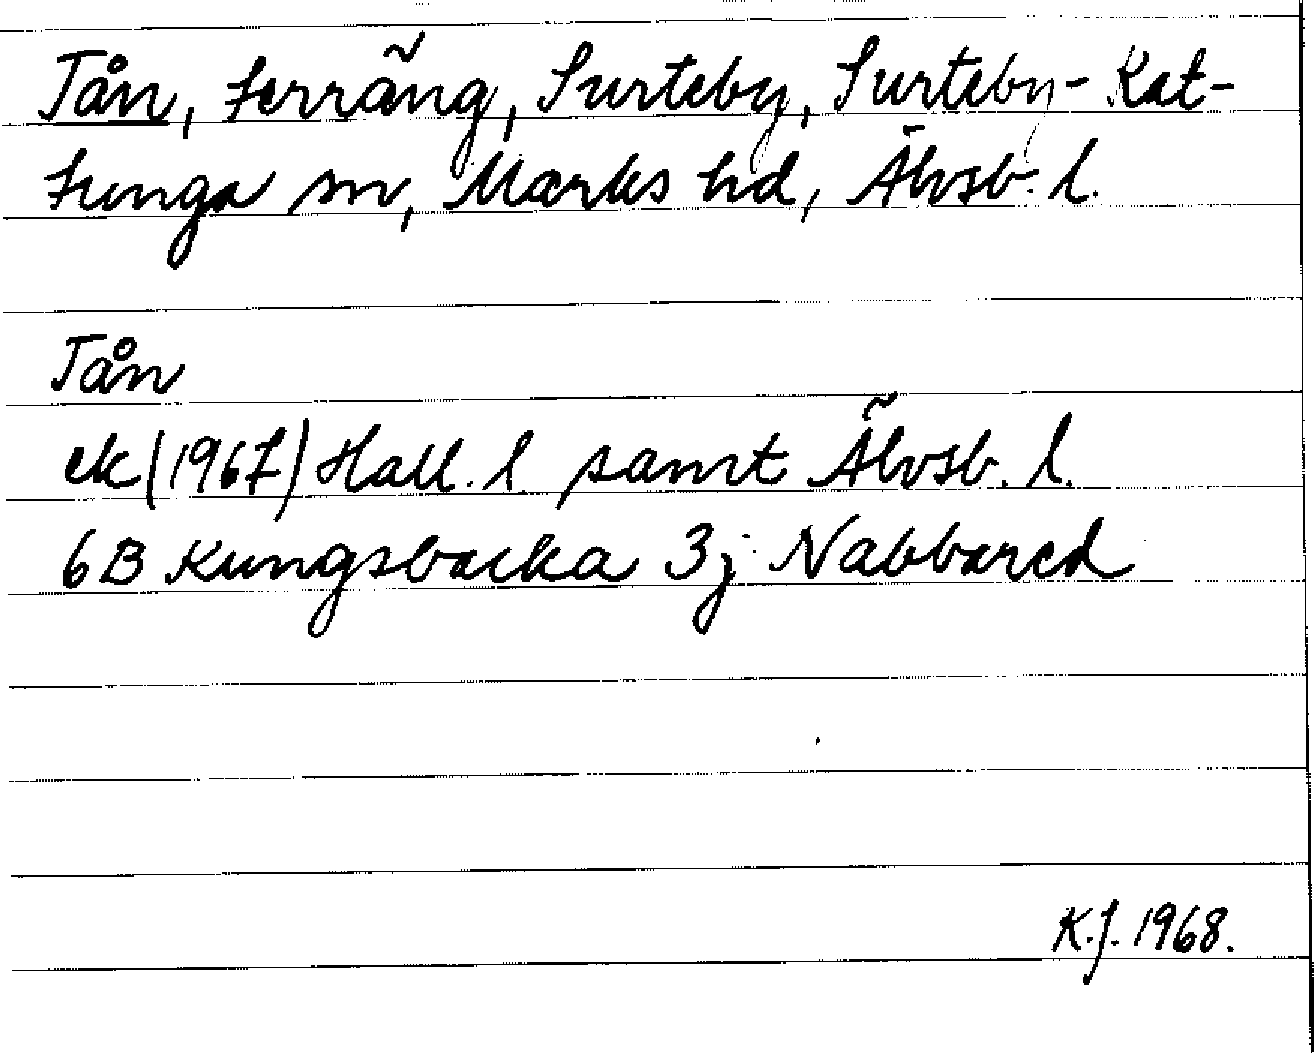 Tån, terräng, Surteby, Surteby-Kat-
tunga sn, Marks hd, Älvsb. l.
Tån
ek (1967) Hall. l samt Älvsb. l.
6B Kungsbacka 3j Nabbared
K.J. 1968.